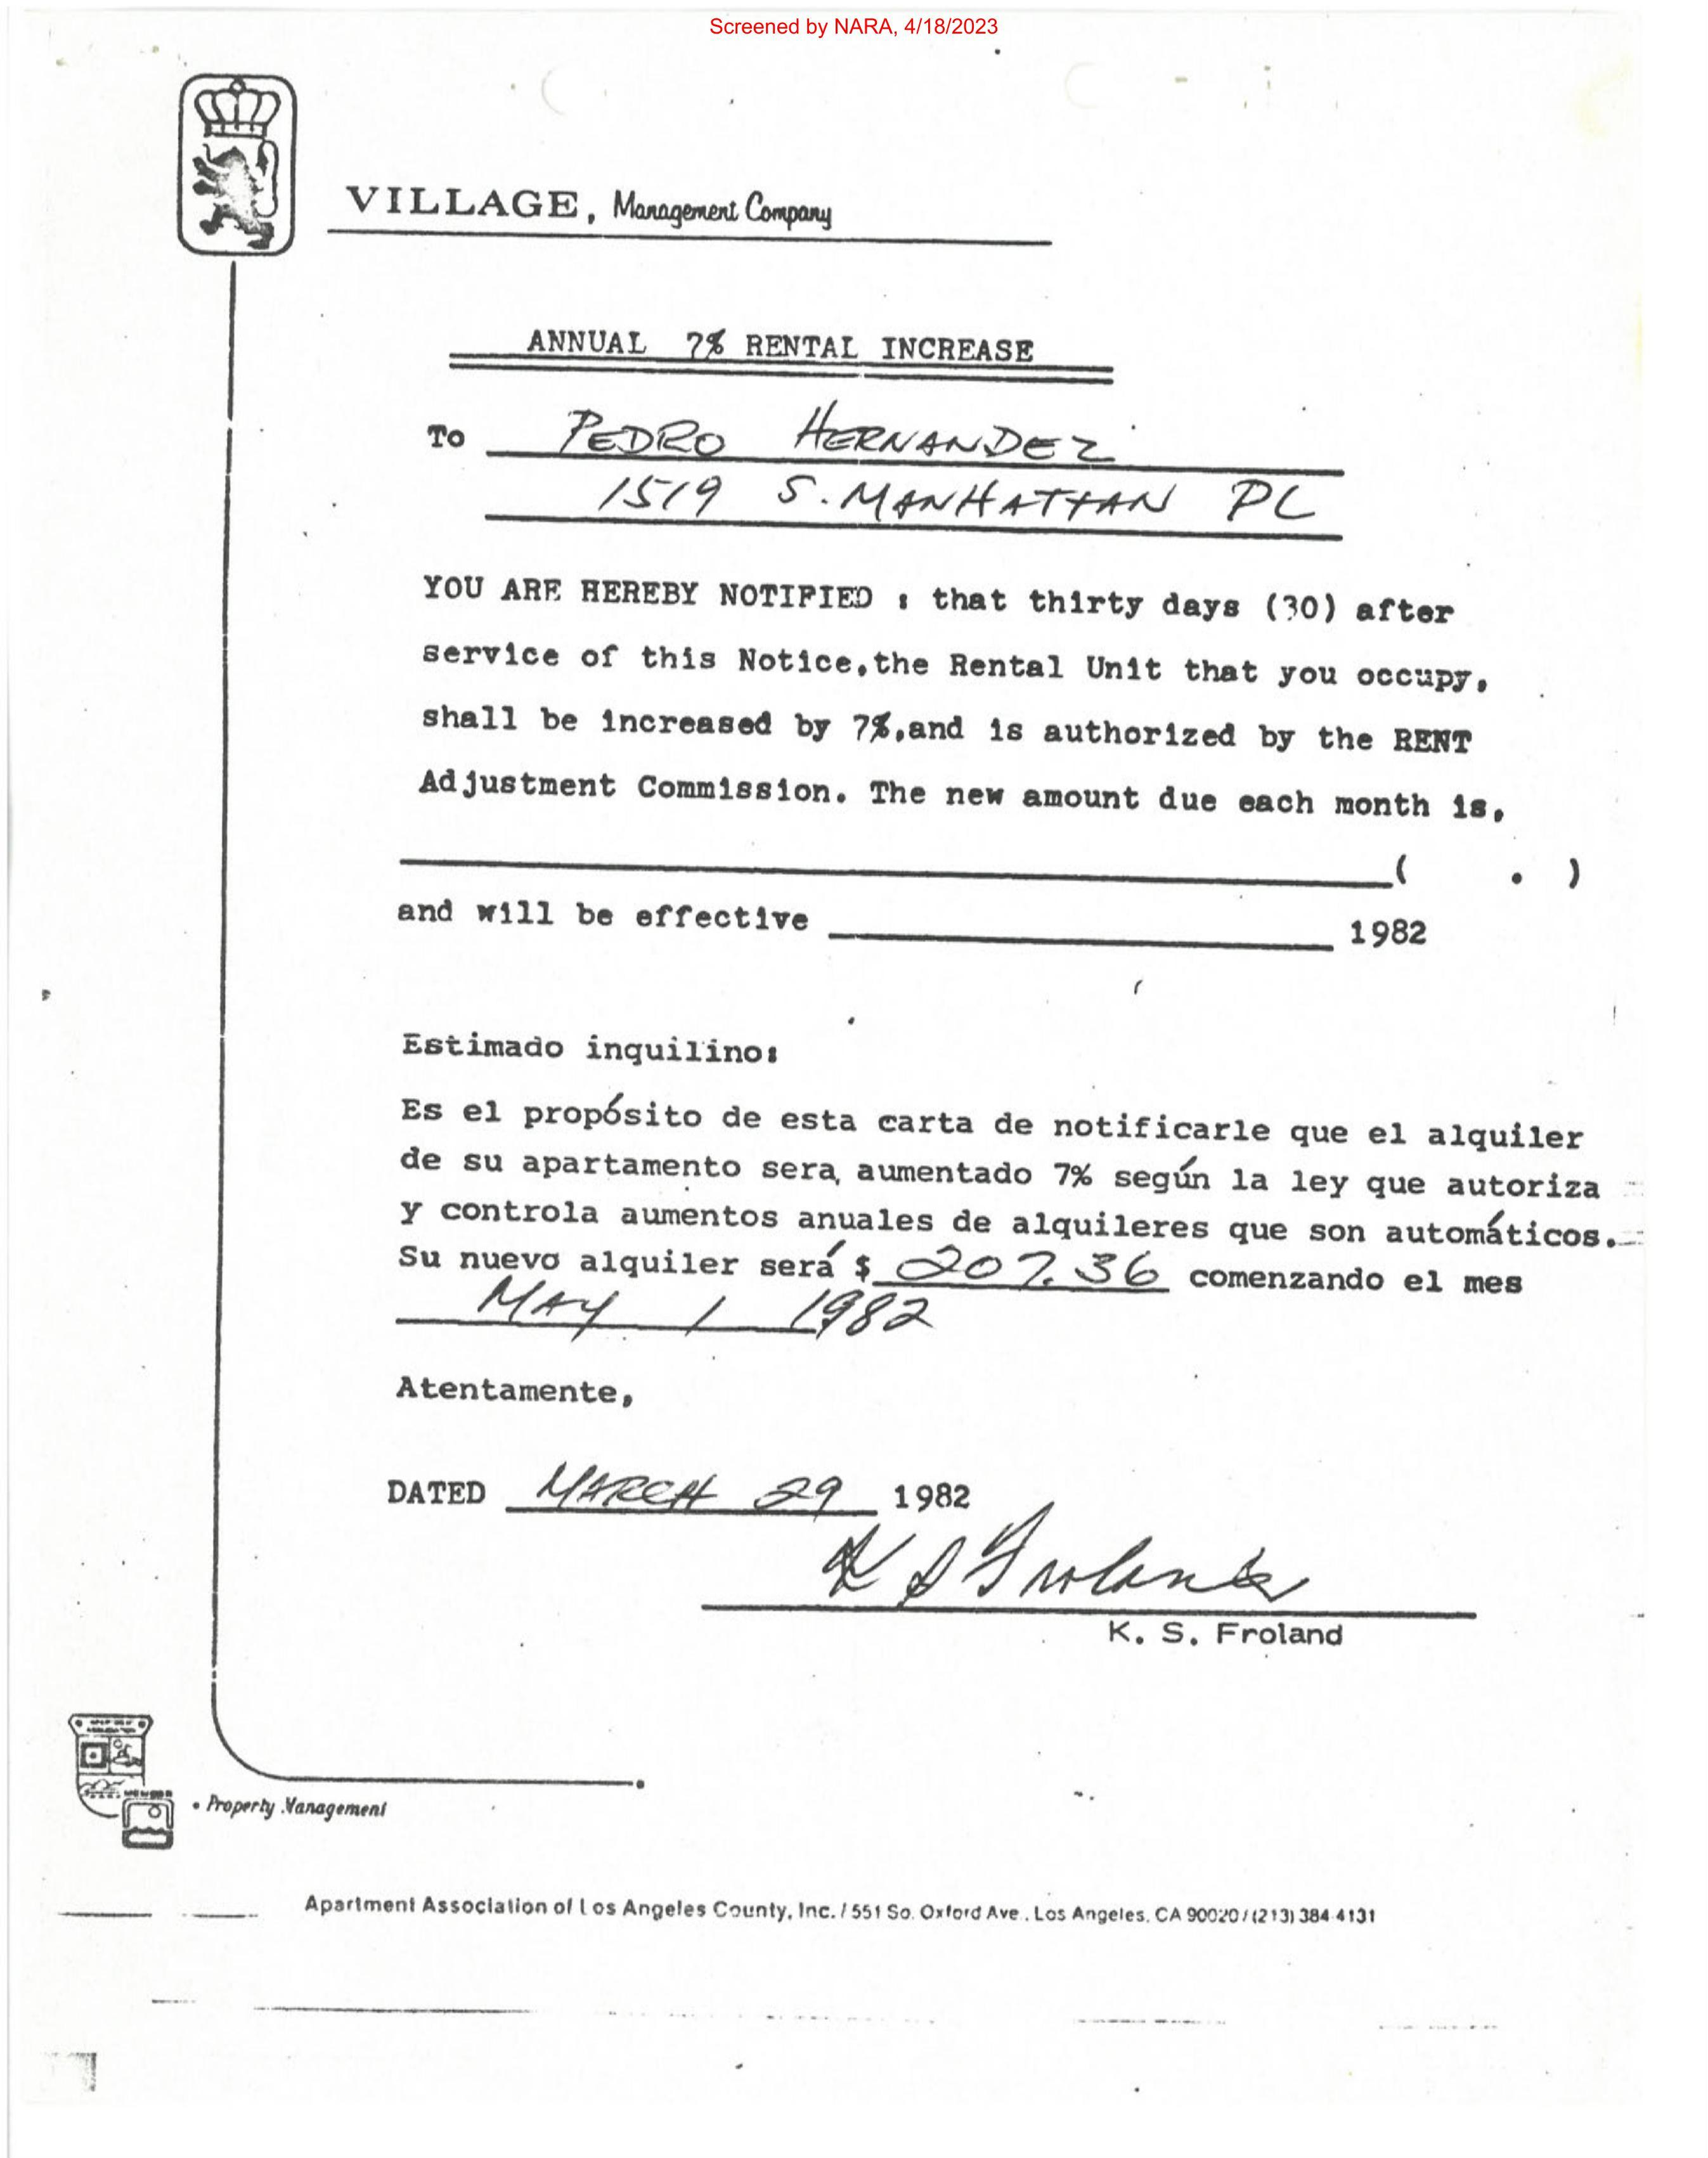 Screened by NARA, 4/18/2023
VILLAGE, Management Company
ANNUAL 7% RENTAL INCREASE
To PEDRO HERNANDEZ
1519 S. MANHATTAN PL
YOU ARE HEREBY NOTIFIED : that thirty days (30) after
service of this Notice,the Rental Unit that you occupy,
shall be increased by 7%,and is authorized by the RENT
Adjustment Commission. The new amount due each month is,
( . )
and will be effective 1982
Estimado inquilino:
Es el propósito de esta carta de notificarle que el alquiler
de su apartamento sera, aumentado 7% según la ley que autoriza
y controla aumentos anuales de alquileres que son automáticos.
Su nuevo alquiler será $ 207.36 comenzando el mes
MAY 1 1982
Atentamente,
DATED MARCH 29 1982
K S Froland
K. S. Froland
• Property Management
Apartment Association of Los Angeles County, Inc. / 551 So. Oxford Ave., Los Angeles, CA 90020 / (213) 384-4131